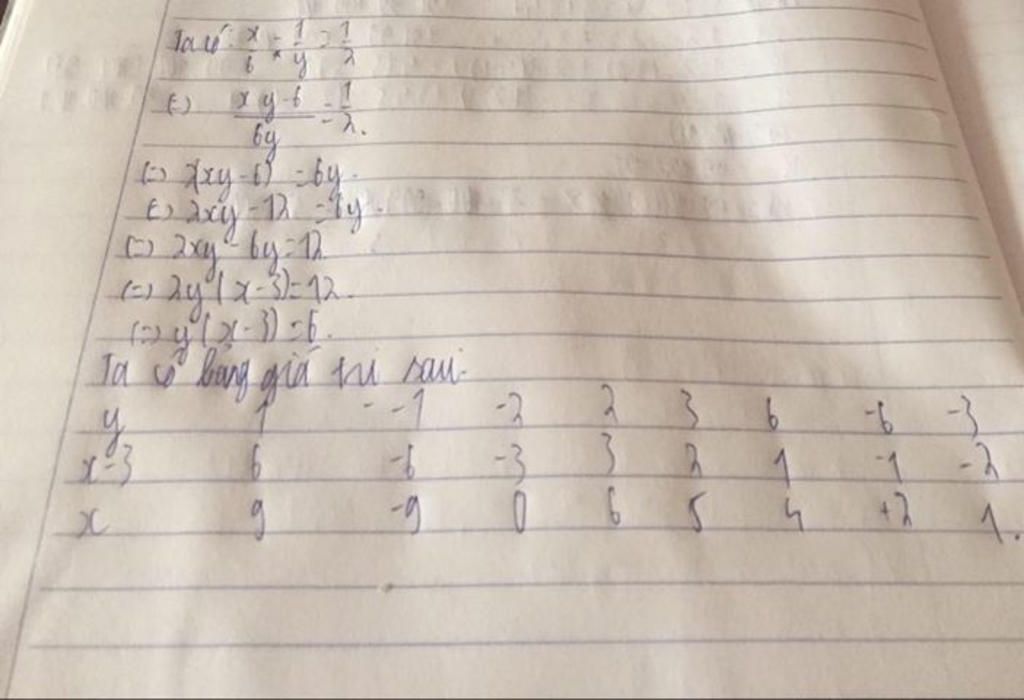 Ta có: x/6 - 1/y = 1/2
(=) xy-6/6y = 1/2.
(=) 2(xy-6) = 6y.
(=) 2xy-12 = 6y.
(=) 2xy-6y=12
(=) 2y(x-3)=12.
(=) y(x-3)=6.
Ta có bảng giá trị sau:
y 1 -1 -2 2 3 6 -6 -3
x-3 6 -6 -3 3 2 1 -1 -2
x 9 -9 0 6 5 4 +2 1.